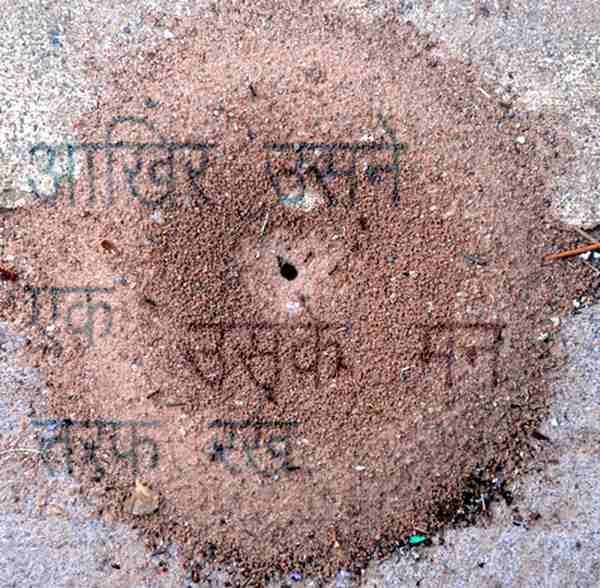 आखिर उसने
एक
उसके मन
तरफ रख